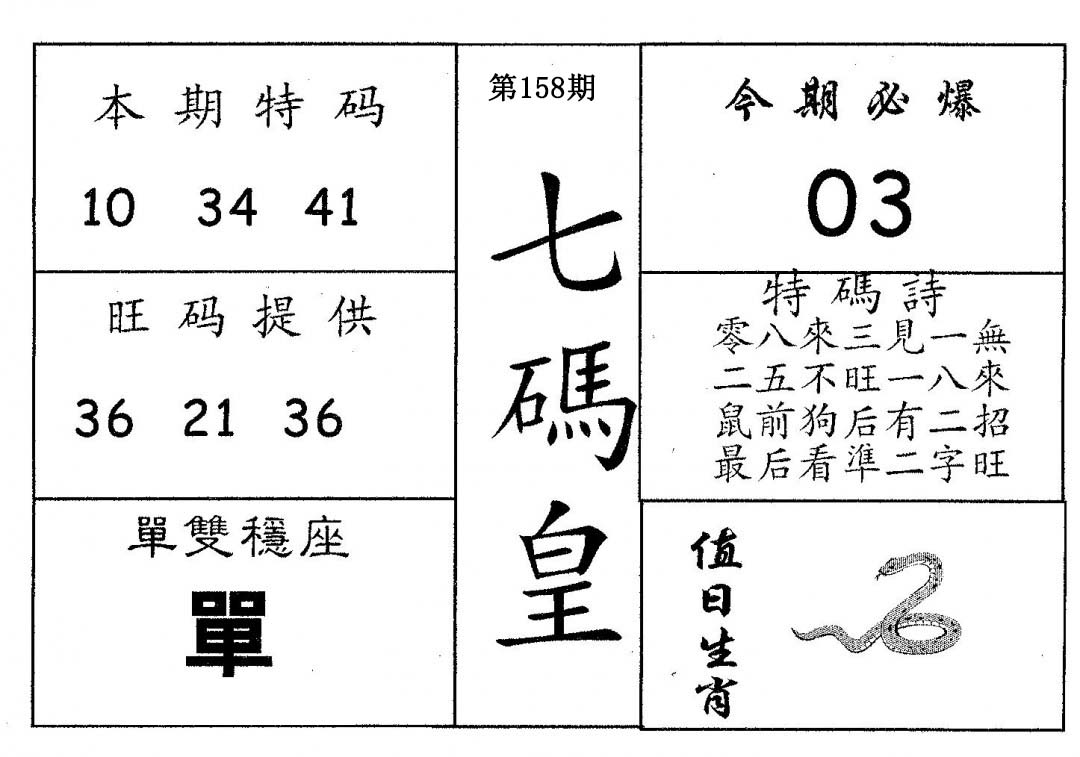 本期特码
10 34 41
旺码提供
36 21 36
單雙穩座
單
第158期
七碼皇
今期必爆
03
特碼詩
零八來三見一無
二五不旺一八來
鼠前狗后有二招
最后看準二字旺
值日生肖